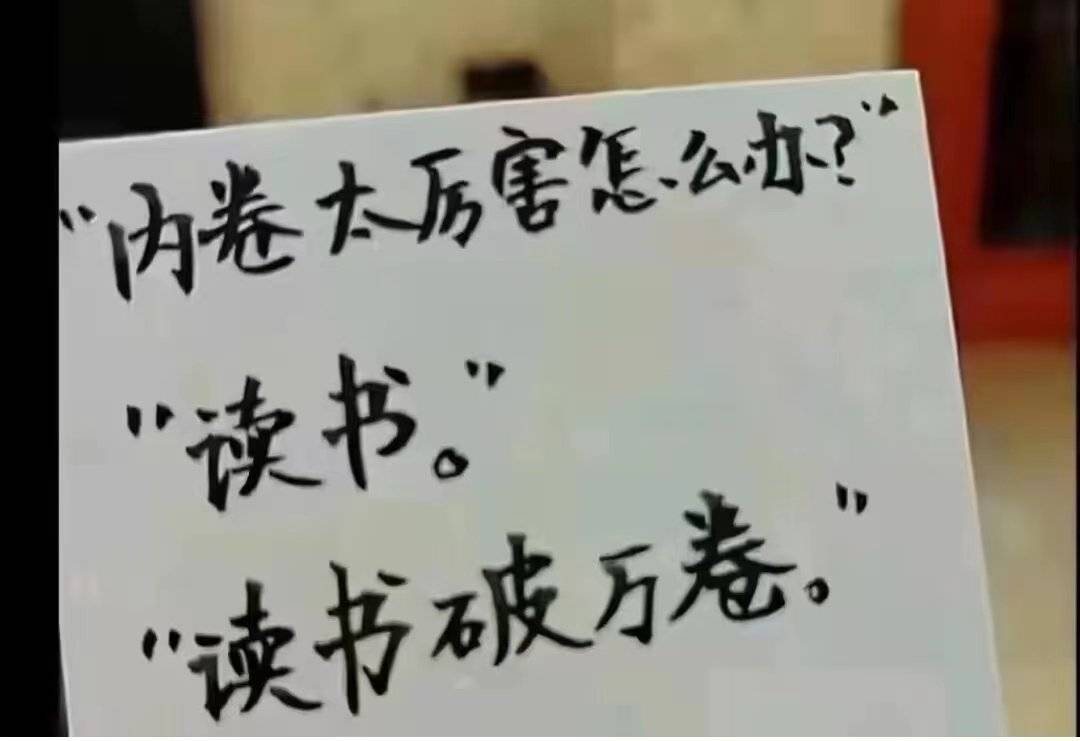 “内卷太厉害怎么办?”
“读书。”
“读书破万卷。”